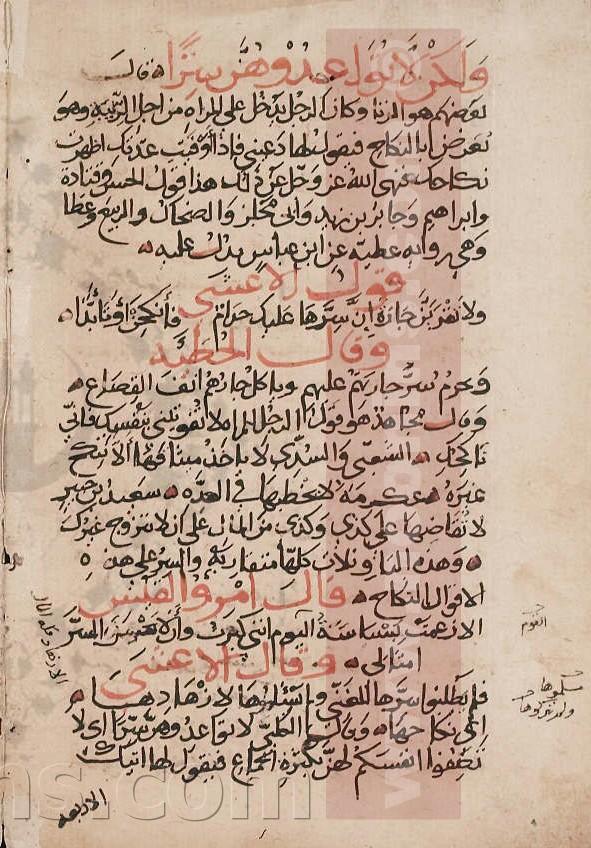 ولكن لا تواعدوهن سرا قال
بعضهم هو الزنا وكان الرجل يدخل على المراه من اجل الريبه وهو
يعرض بالنكاح فيقول لها دعيني فاذا اوفيت عدتك اظهرت
نكاحك فنهى الله عز وجل عن ذلك هذا قول الحسن وقتادة
وابراهيم وجابر بن زيد وابي مجلز والضحاك والربيع وعطا
وهي رواية عطيه عن ابن عباس يدل عليه
قول الاعشى
ولا تقربن جارة إن سرها عليك حرام فأنكحن أو تأبدا
وقال الحطيه
ويحرم سر جارتهم عليهم وياكل جارهم انف القصاع
وقال مجاهد هو قول الرجل للمراه لا تفوتيني بنفسك فاني
ناكحك الشعبي والسدي لا ياخذ ميثاقها ألا تنكح
غيره عكرمة لا يخطبها في العده سعيد بن جبير
لا تقاضها على كذى وكذى من المال على ان لا تتزوج غيرك
وهذه التاويلات كلها متقاربة والسر على هذه
الاقوال النكاح قال امرؤ القيس
الا زعمت بسباسة اليوم انني كبرت وأن لا يحسن السر
امثالي وقال الاعشى
فلم يطلبوا سرها للغنى ولم يسلموها لازهادها
اي نكاحها وقال الكلبي لا تواعدوهن سرا اي لا
تصفوا انفسكم لهن بكثرة الجماع فيقول لها اتيك
الاربعة
القوم